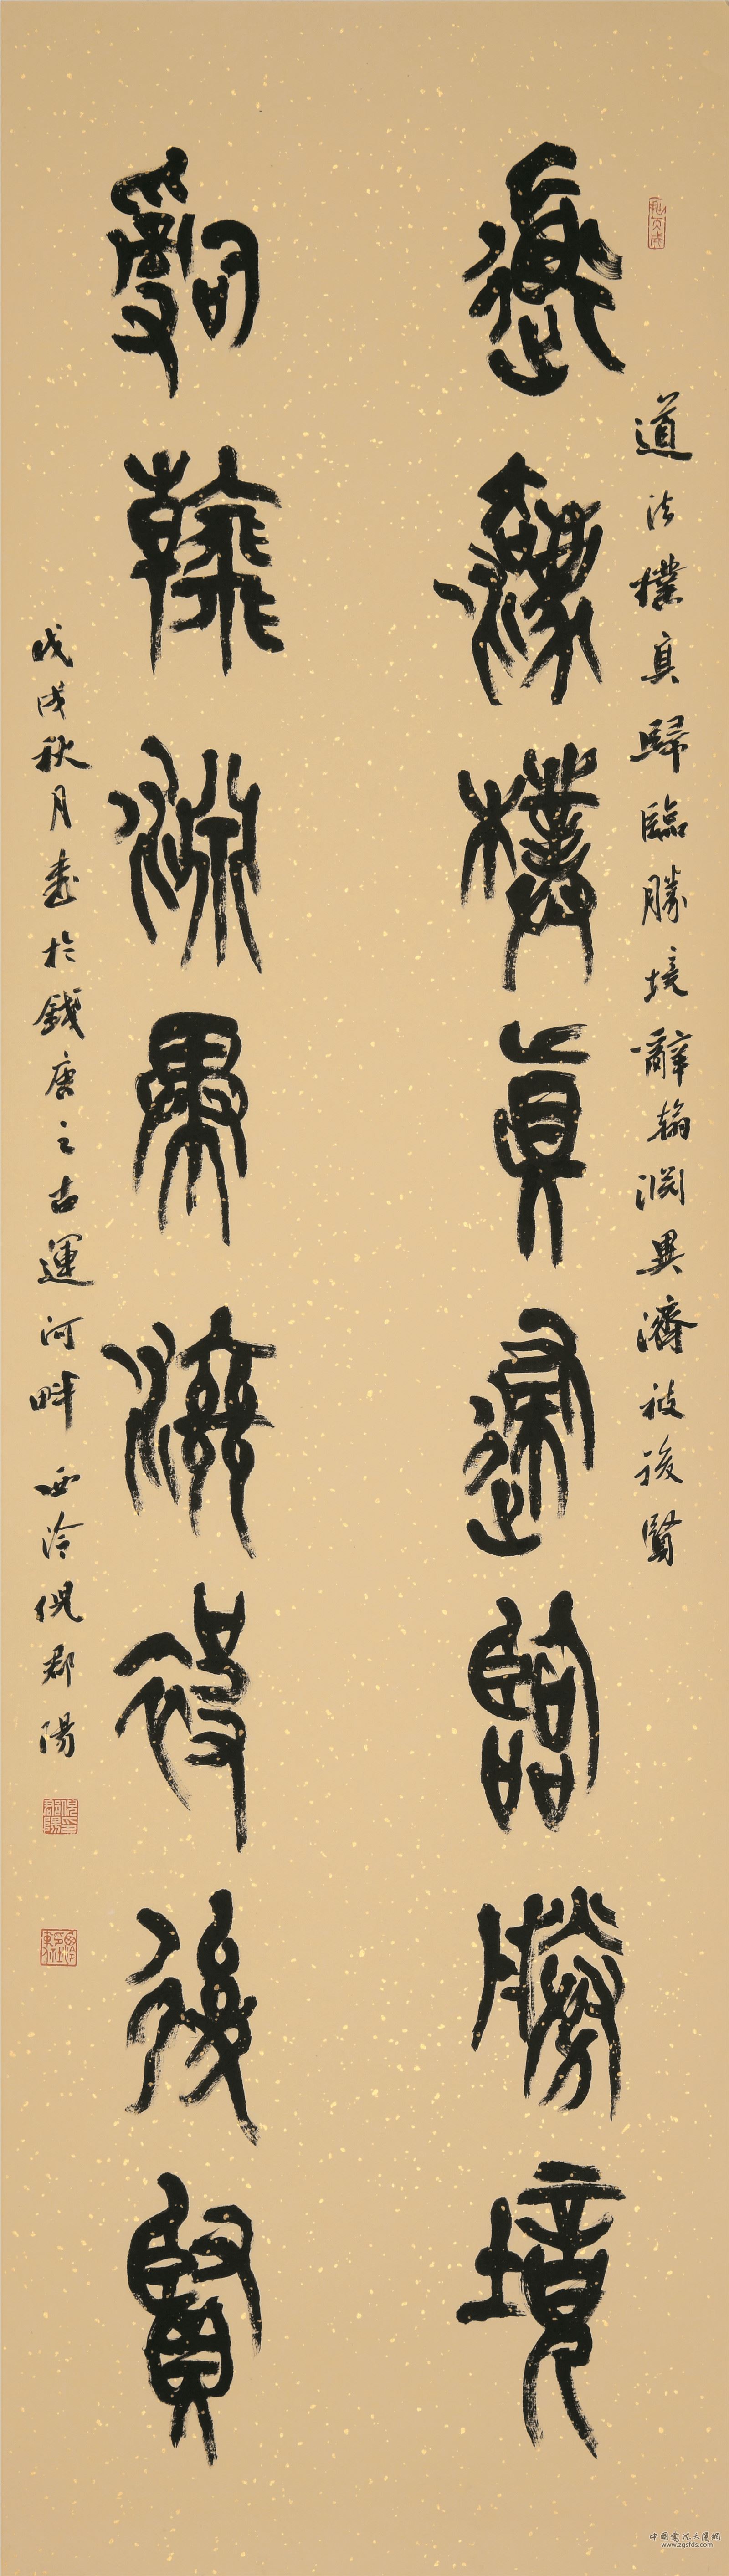 道法樸真歸臨勝境辭翰淵異濟被後賢
道灋樸真歸臨勝境
辭翰淵異濟被後賢
戊戌秋月書於錢唐之古運河畔西泠倪郡陽
中國書法大廈網
www.zgsfds.com